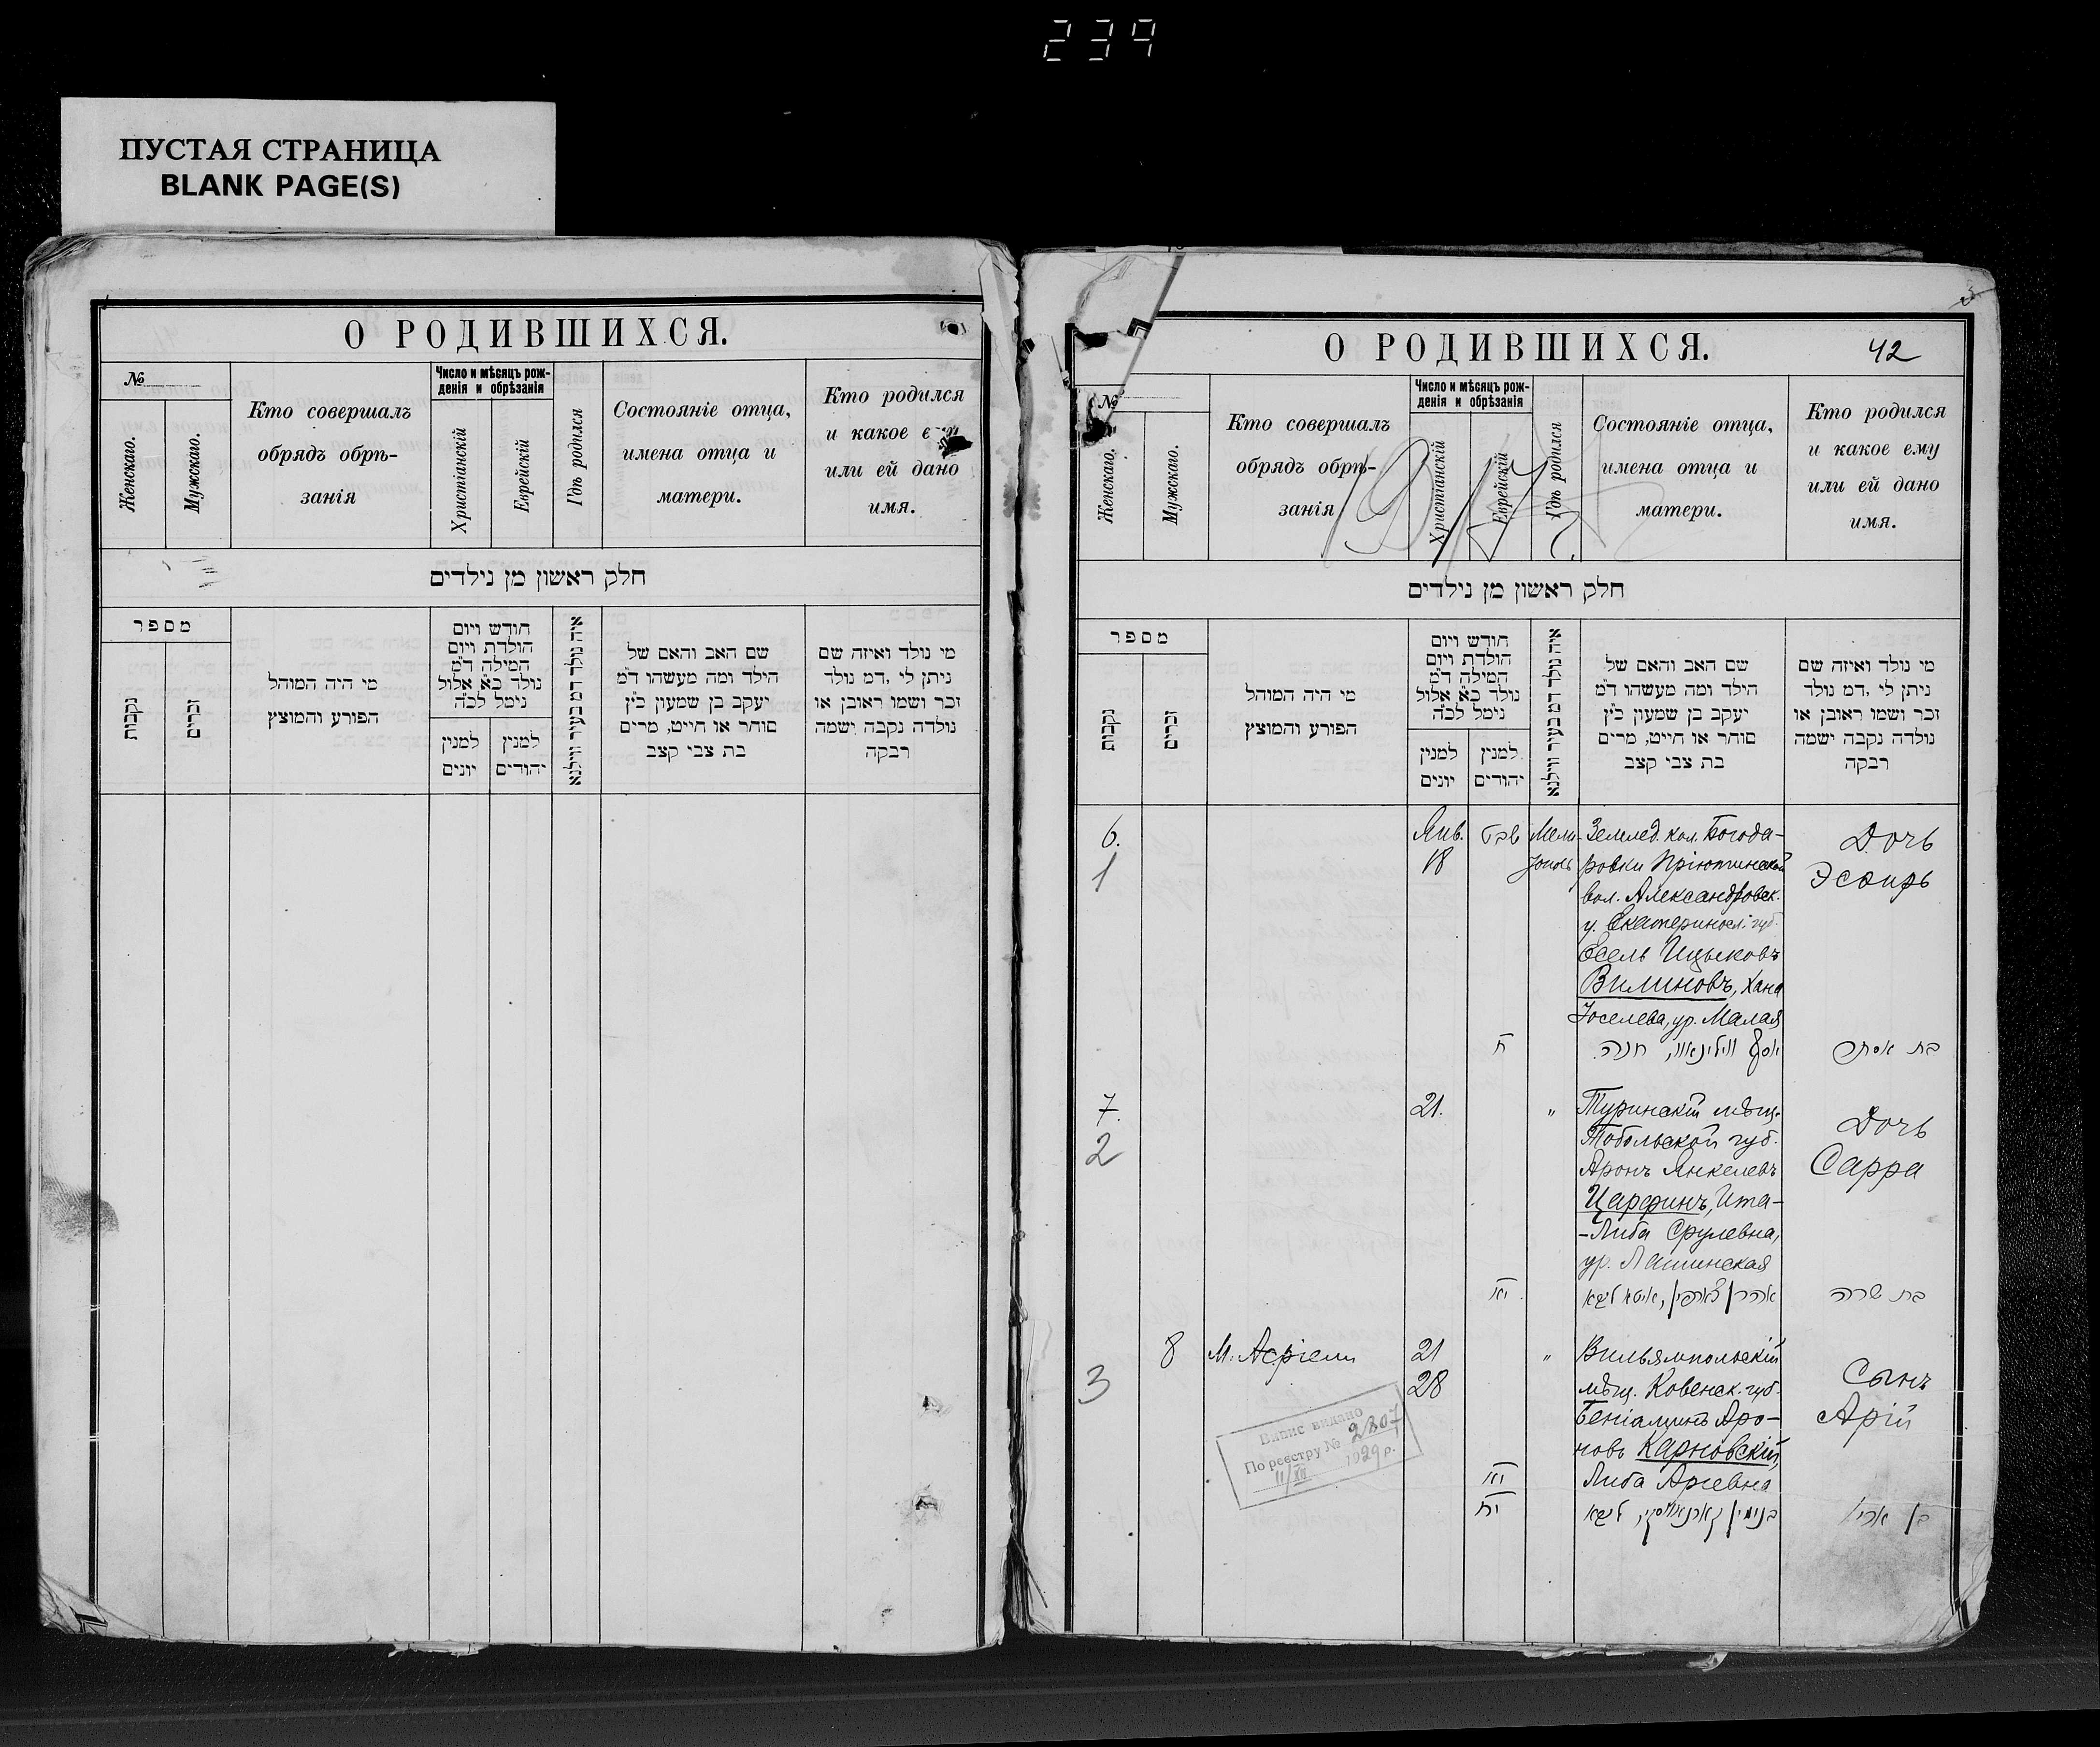 239
ПУСТАЯ СТРАНИЦА
BLANK PAGE(S)
О РОДИВШИХСЯ.
№
Женскаго.
Мужскаго.
Кто совершалъ
обрядъ обрѣ-
занія
Число и мѣсяцъ рож-
денія и обрѣзанія
Христіанскій
Еврейскій
Гдѣ родился
Состояніе отца,
имена отца и
матери.
Кто родился
и какое
или ей дано
имя.
חלק ראשון מן נילדים
מספר
נקבות
זכרים
מי היה המוהל
הפורע והמוצץ
חודש ויום
הולדת ויום
המילה ד״מ
נולד כ״א אלול
נימל לכ״ה
למנין
יונים
למנין
יהודים
איה נולד דמ בעיר ווילנא
שם האב והאם של
הילד ומה מעשהו ד״מ
יעקב בן שמעון כ״ץ
סוחר או חייט, מרים
בת צבי קצב
מי נולד ואיזה שם
ניתן לי ,דמ נולד
זכר ושמו ראובן או
נולדה נקבה ישמה
רבקה
О РОДИВШИХСЯ.
42
№
Женскаго.
Мужскаго.
Кто совершалъ
обрядъ обрѣ-
занія
Число и мѣсяцъ рож-
денія и обрѣзанія
Христіанскій
Еврейскій
Гдѣ родился
Состояніе отца,
имена отца и
матери.
Кто родился
и какое ему
или ей дано
имя.
חלק ראשון מן נילדים
מספר
נקבות
זכרים
מי היה המוהל
הפורע והמוצץ
חודש ויום
הולדת ויום
המילה ד״מ
נולד כ״א אלול
נימל לכ״ה
למנין
יונים
למנין
יהודים
איה נולד דמ בעיר ווילנא
שם האב והאם של
הילד ומה מעשהו ד״מ
יעקב בן שמעון כ״ץ
סוחר או חייט, מרים
בת צבי קצב
מי נולד ואיזה שם
ניתן לי ,דמ נולד
זכר ושמו ראובן או
נולדה נקבה ישמה
רבקה
6.
1
Янв.
18
שבט
ח
Мели-
тополь
Землед. кол. Богода-
ровки Пріютинской
вол. Александровск.
у. Екатериносл. губ.
Есель Ицыковъ
Вилиновъ, Хана
Іоселева, ур. Малая
יוסף ווילינאוו, חנה.
Дочь
Эсѳирь
בת אסתר
7.
2
21.
יא
"
Туринскій мѣщ.
Тобольской губ.
Аронъ Янкелевъ
Царфинъ, Ита-
-Либа Срулевна,
ур. Лашинская
אהרן צארפין, איטא ליבא
Дочь
Сарра
בת שרה
8
3
М. Асріели
21
28
יא
יח
"
Вильямпольскій
мѣщ. Ковенск. губ.
Беніаминъ Аро-
новъ Карновскій,
Либа Аріевна
בנימין קארנאווסקי, ליבא
Сынъ
Арій
בן ארי'
Випис видано
По реєстру № 2807
11/XII 1929 р.